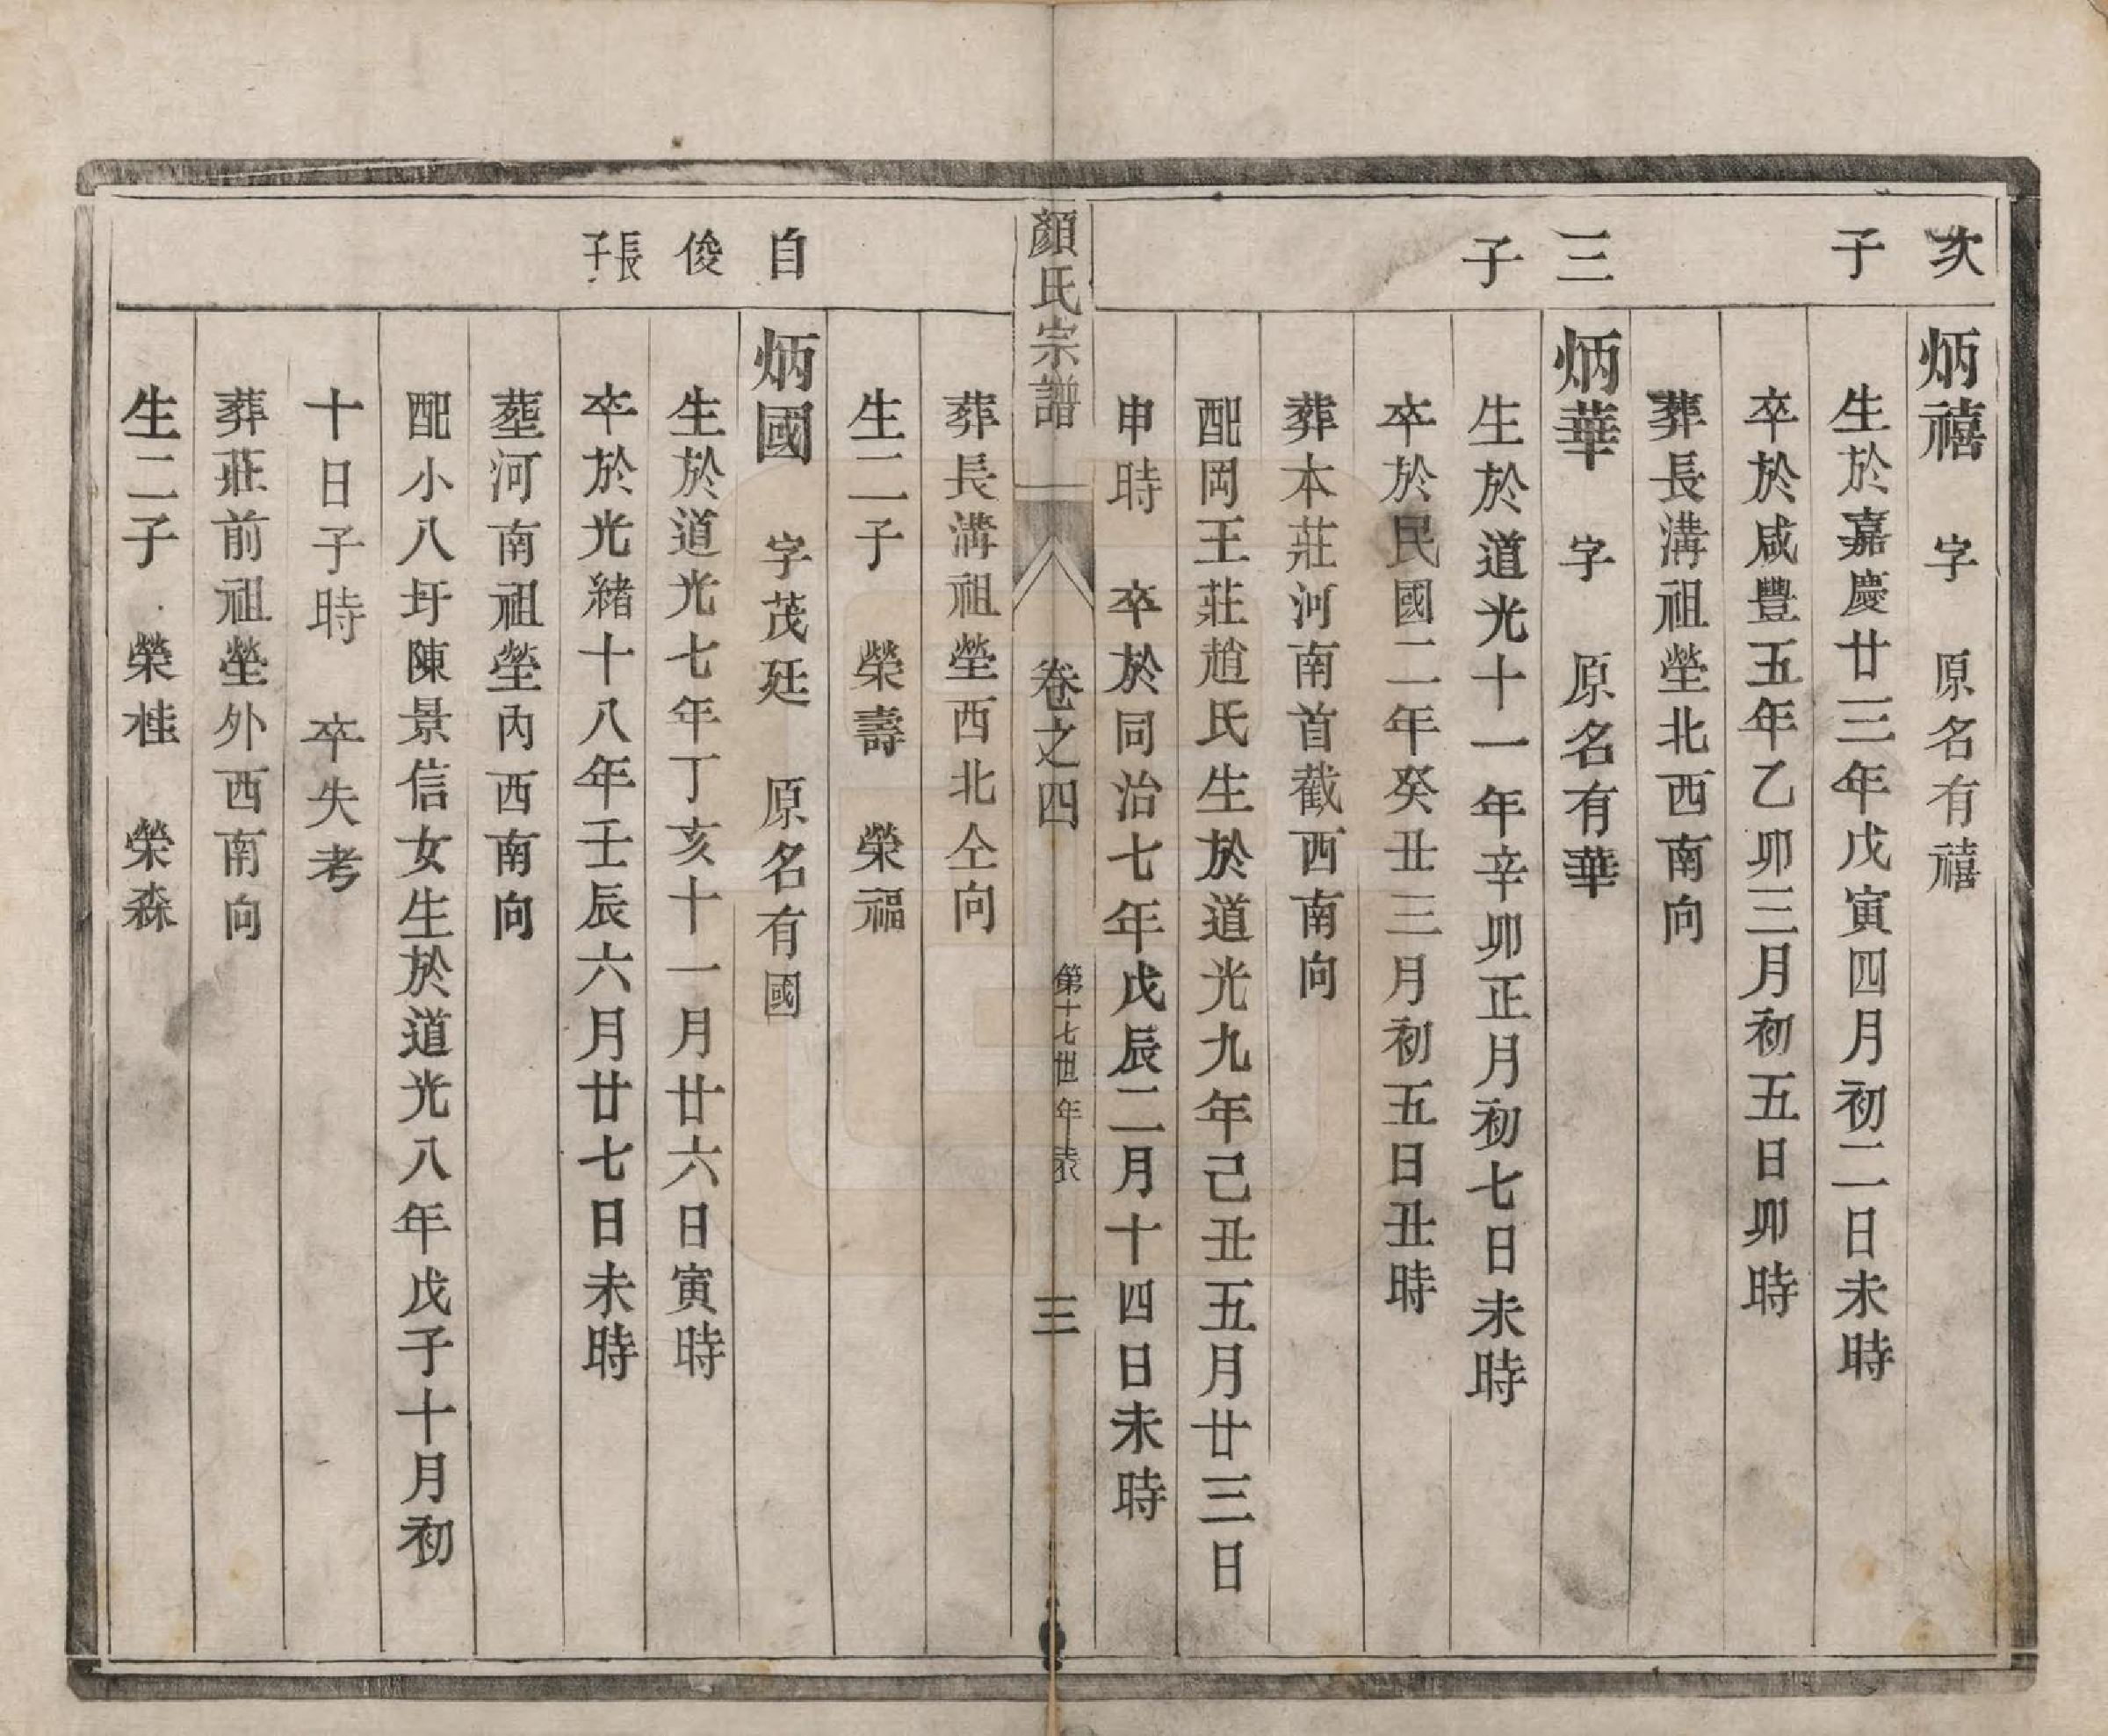 次子
炳禧　字　原名有禧
生於嘉慶廿三年戊寅四月初二日未時
卒於咸豐五年乙卯三月初五日卯時
葬長溝祖塋北西南向
三子
炳華　字　原名有華
生於道光十一年辛卯正月初七日未時
卒於民國二年癸丑三月初五日丑時
葬本莊河南首截西南向
配岡王莊趙氏生於道光九年己丑五月廿三日
申時　卒於同治七年戊辰二月十四日未時
顏氏宗譜　卷之四　第十七世年表　三
葬長溝祖塋西北仝向
生二子　榮壽　榮福
自俊長子
炳國　字茂延　原名有國
生於道光七年丁亥十一月廿六日寅時
卒於光緒十八年壬辰六月廿七日未時
葬河南祖塋內西南向
配小八圩陳景信女生於道光八年戊子十月初
十日子時　卒失考
葬莊前祖塋外西南向
生二子　榮桂　榮森